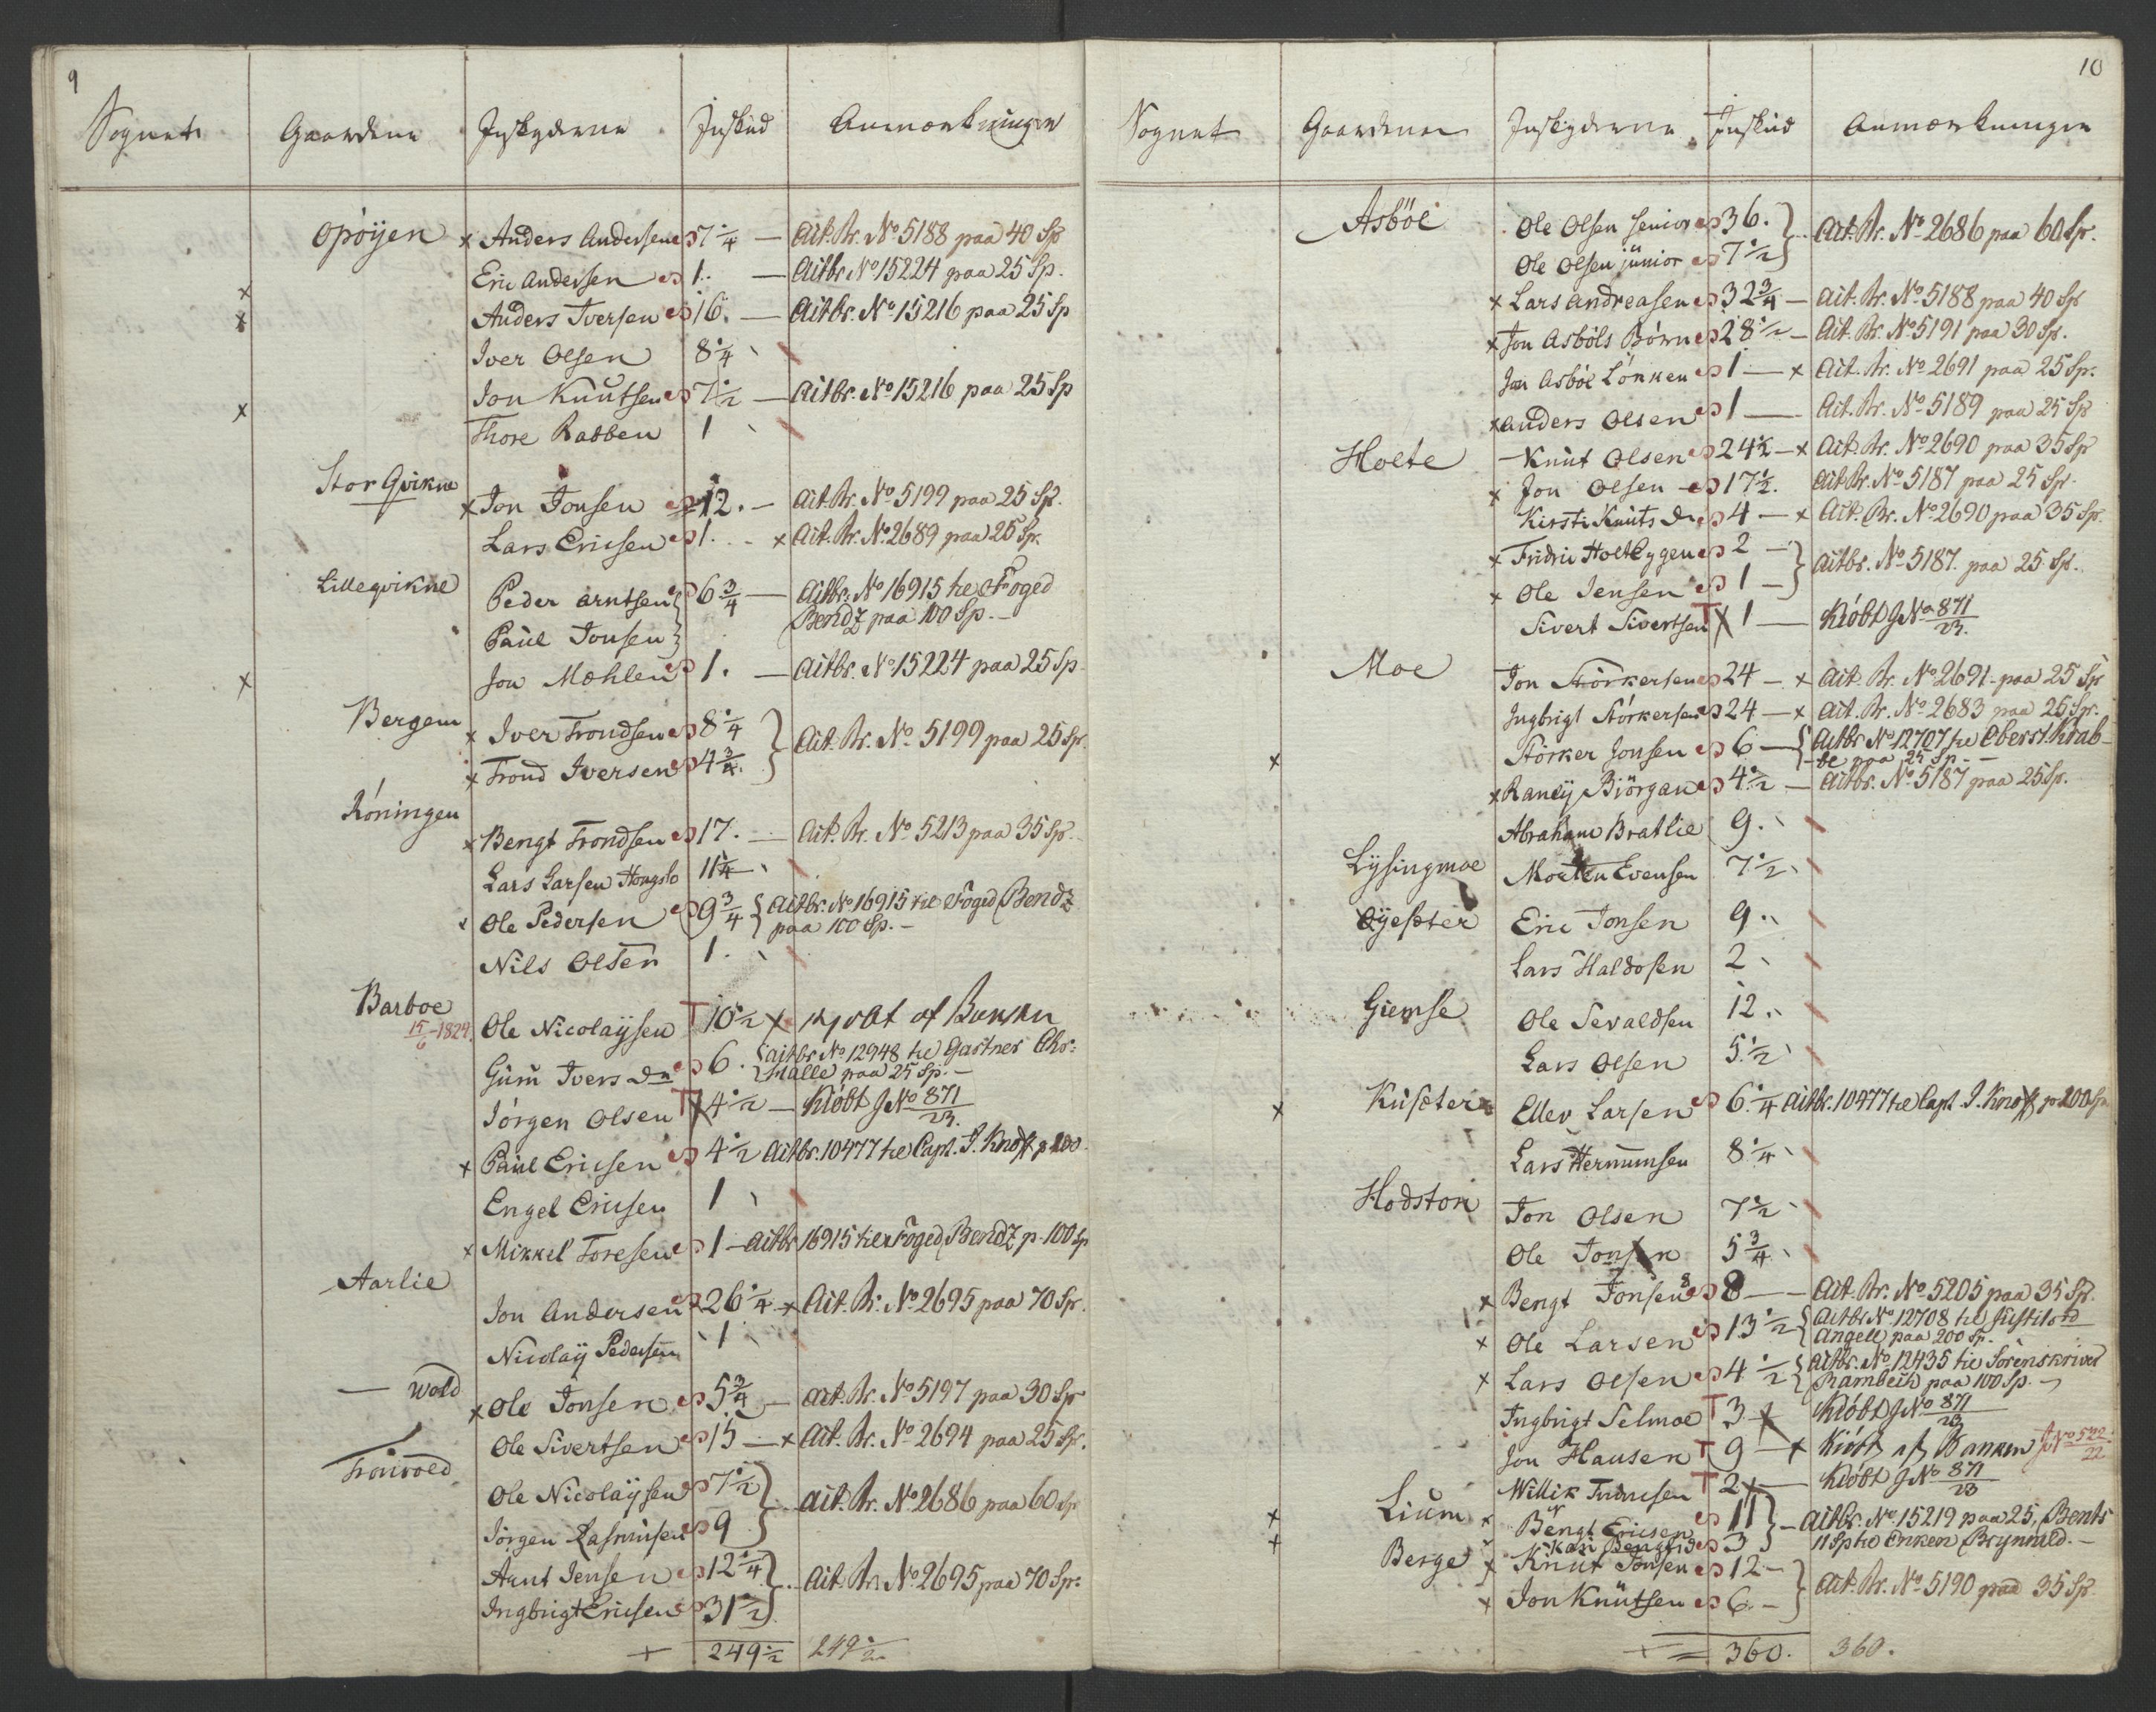 9
Sognet Gaardene Indskyderne Indskud Anmærkninger
Opøyen x Anders Andersen 7 1/4 — Act. Br. No 5188 paa 40 Sp
Eric Andersen 1. — Actbr No 15224 paa 25 Sp.
x Anders Iversen 16. — Actbr. No 15216 paa 25 Sp
x Iver Olsen 8 1/4
Jon Knutsen 7 1/2 — Actbr. No 15216 paa 25 Sp
x Thore Rabben 1
Stor Qvikne x Jon Jonsen 12. — Act. Br. No 5199 paa 25 Sp.
Lars Ericsen 1. - x Act. Br. No 2689 paa 25 Sp.
Lilleqvikne Peder Arntsen 6 3/4 — Actbr. No 16915 til Foged
Paul Jonsen Bendz paa 100 Sp. —
x Jon Mæhlen 1. — Actbr. No 15224 paa 25 Sp.
Bergem x Iver Trondsen 8 1/4
x Trond Iversen 4 3/4. } Act. Br. No 5199 paa 25 Sp.
Röningen
x Bengt Trondsen 17. — Act. Br. No 5213 paa 35 Sp.
Lars Larsen Hougslo 11 1/4
x Ole Pedersen 9 3/4 { Actbr. No 16915 til Foged Bendz
paa 100 Sp. —
Nils Olsen 1.
Barboe
15/6 - 1824. Ole Nicolaysen T 10 1/2 x kjøbt af Banken
Guru Ivers D 6. { Actbr No 12948 til Gartner Chr:
Halle paa 25 Sp. —
Jörgen Olsen T x 4 1/2 — Kiöbt J No 871/23.
x Paul Ericsen 4 1/2 Actbr. 10477 til Capt. J. Knoff p 200.
Engel Ericsen 1
x Mikkel Toresen 1 — Actbr 16915 til Foged Bendz p. 100 Sp
Aarlie
Jon Andersen 26 1/4 x Act. Br. No 2695 paa 70 Sp.
Nicolaÿ Pedersen 1
— Wold x Ole Jonsen 5 3/4 — Act. Br. No 5197 paa 30 Sp
Ole Sivertsen 15 — x Act. Br. No 2694 paa 25 Sp.
Tronvold
Ole Nicolaÿsen 7 1/2
Jörgen Rasmusen 9 } Act. Br. No 2686 paa 60 Sp
Arnt Jensen 12 1/4
Ingbrigt Ericsen 31 1/2 } Act. Br. No 2695 paa 70 Sp.
+ 249 1/2 249 1/2
10
Sognet Gaardene Indskyderne Indskud Anmærkninger
Asböe Ole Olsen senior 36.
Ole Olsen junior 7 1/2 } Act. Br. No 2686 paa 60 Sp.
x Lars Andreasen 32 3/4 — Act. Br. No 5188 paa 40 Sp
x Jon Asböls Börn 28 1/2 — Act. Br. No 5191 paa 30 Sp.
Jon Asböe Lönken 1 — x Act. Br. No 2691 paa 25 Sp.
x Anders Olsen 1 — Act. Br. No 5189 paa 25 Sp
Holte — Knut Olsen 24 1/2 — x Act. Br. No 2690 paa 35 Sp
x Jon Olsen 17 1/2. Act Br. No 5187 paa 25 Sp.
Kirsti Knuts D 4 — x Act. Br. No 2690 paa 35 Sp.
x Fridric Holteggen 2 —
x Ole Jensen 1 — } Actbr. No 5187. paa 25 Sp.
Sivert Sivertsen T x 1 — Kiöbt J No 871/23.
Moe
Jon Störkersen 24 — x Act. Br. No 2691 paa 25 Sp
Ingbrigt Störkersen 24 — x Act. Br. No 2683 paa 25 Sp.
x Störker Jonsen 6 — { Actbr No 12707 til Oberst. Krab-
be paa 25 Sp. —
x Raneÿ Biörgan 4 1/2 — Actbr. No 5187 paa 25 Sp.
Abraham Bratlie 9.
Lÿsingmoe Morten Evensen 7 1/2
Öÿesæter Eric Jonsen 9.
Lars Haldosen 2
Giemse Ole Sevaldsen 12.
Lars Olsen 5 1/2
x Kusæter Ellev Larsen 6 1/4 Actbr. 10477 til Capt. J. Knoff p 200 Sp.
Lars Hermunsen 8 1/4
Hodston Jon Olsen 7 1/2
Ole Jonsen 5 3/4
x Bengt Jonsen 8 — Act. Br. No 5205 paa 35 Sp.
x Ole Larsen 13 1/2 { Actbr No 12708 til Justitsrd
Angell paa 200 Sp.
x Lars Olsen 4 1/2 { Actbr. No 12435 til Sorenskriver
Rambech paa 100 Sp. —
Ingbrigt Selmoe T 3 x Kiöbt J No 871/23
Jon Hansen T 9 — x Kiöbt af Banken J No 522/22
Willik Fridricsen T 2 x — Kiöbt J No 871/23
x Lium x Bengt Ericsen 11
x Kari Bengts D 3 } — Actbr. No 15219 paa 25, Bents
11 Sp til Enken Brynild. —
Berge x Knut Jonsen 12 —
x Jon Knutsen 6. — } Act. Br. No 5190 paa 35 Sp.
360. 360.